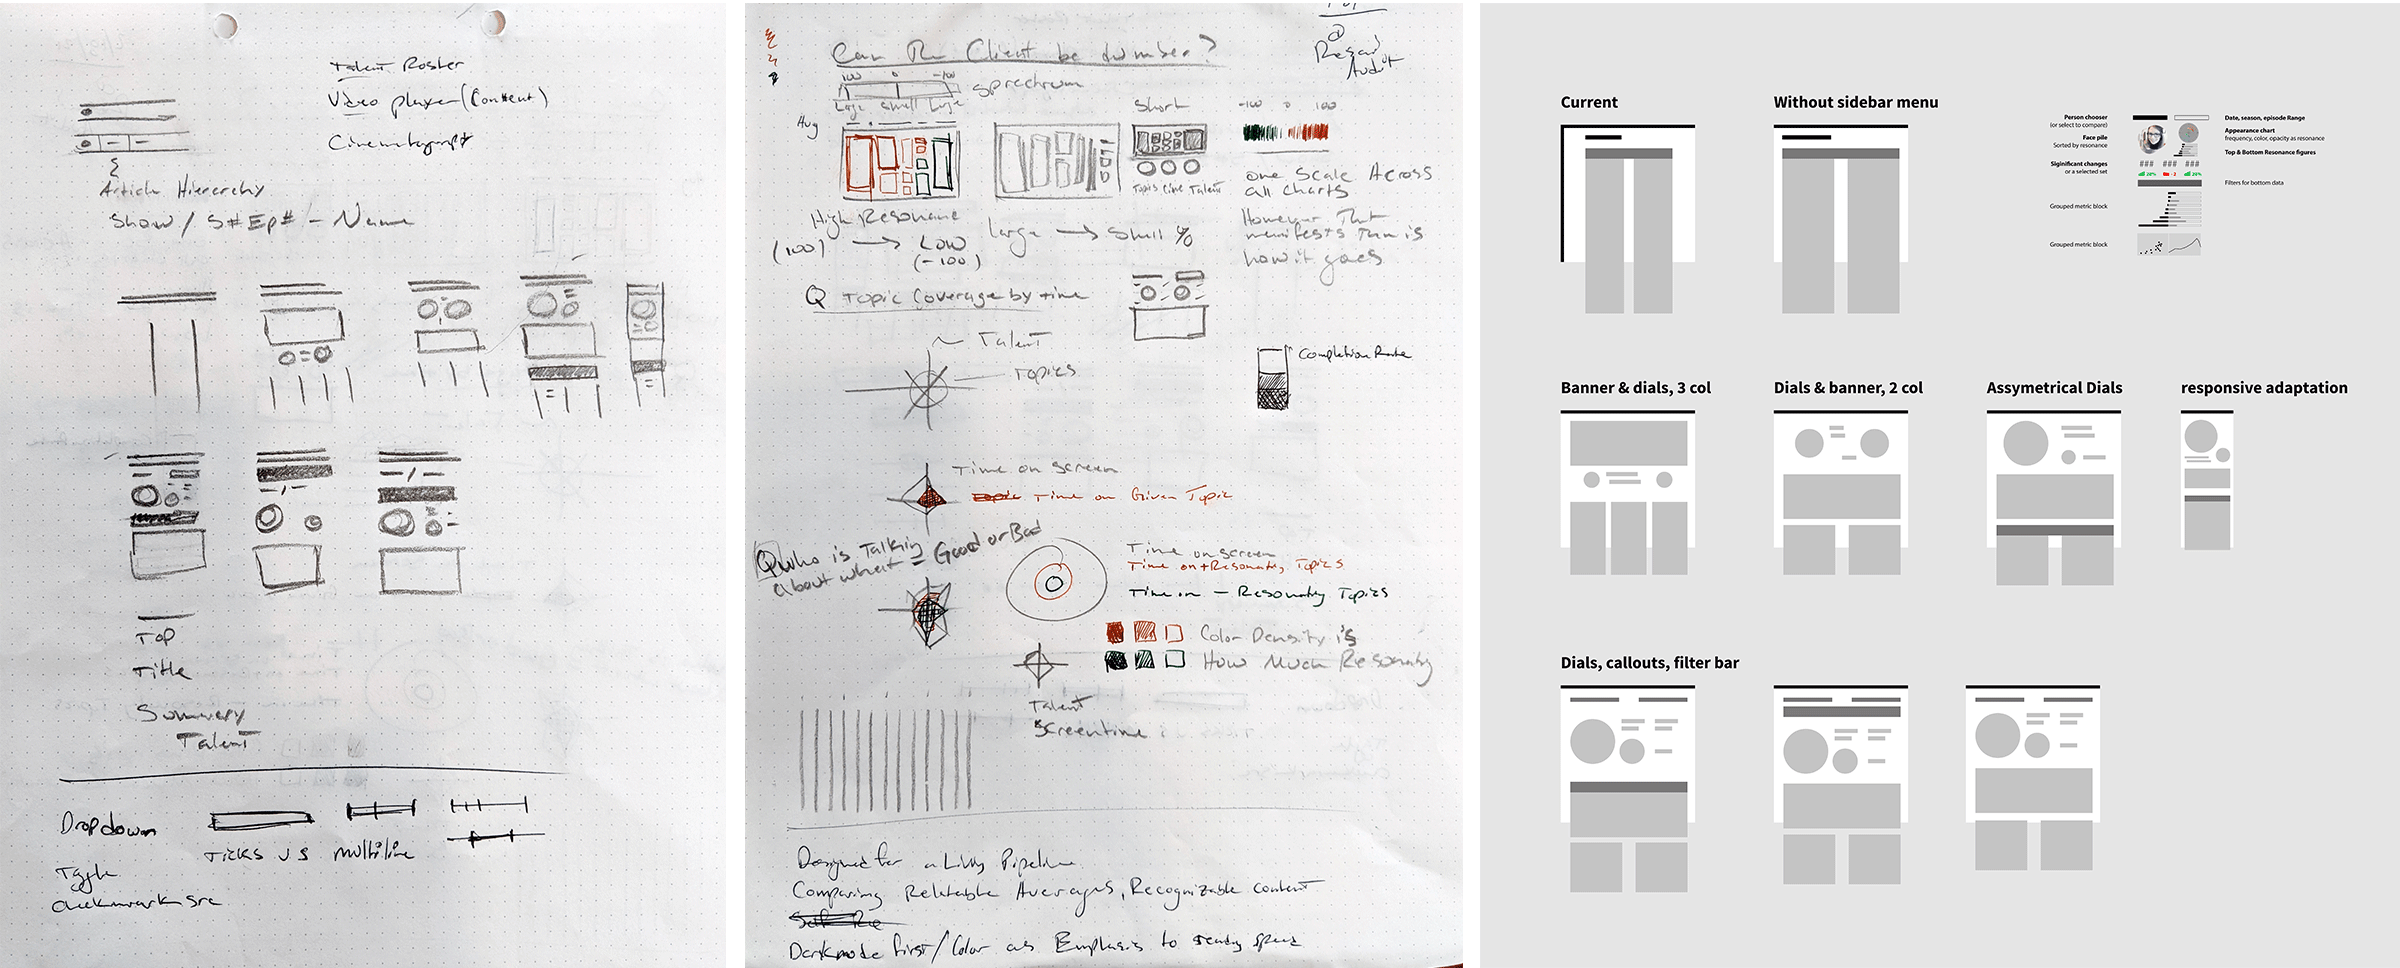 Talent Roster
Video player (Content)
Article Hierarchy
Show / S# Ep# - Name
Top
Title
Summary
Talent
Dropdown
Ticks vs multiline
Toggle
checkmark src
Can The Client be dumber?
100 0 -100
Spectrum
Large Small Large
Short
-100 0 100
Topics Time Talent
One Scale Across
all charts
However That
manifests Then is
how it goes
High Resonance
(100) → Low
(-100)
Large → Small %
Q Topic Coverage by time
Talent
Topics
Completion Rate
Time on screen
Time on Given Topic
Q who is Talking
about what = Good or Bad
Time on screen
Time on + Resonating Topics
Time on - Resonating Topics
Color Density is
How Much Resonating
Talent
Screentime
Designed for a Living Pipeline
Comparing Relatable Averages, Recognizable content
Darkmode first / Color as Emphasis to
Current
Without sidebar menu
Person chooser
(or select to compare)
Face pile
Sorted by resonance
Siginificant changes
or a selected set
Grouped metric block
Grouped metric block
### ### ###
Date, season, episode Range
Appearance chart
frequency, color, opacity as resonance
Top & Bottom Resonance figures
Filters for bottom data
Banner & dials, 3 col
Dials & banner, 2 col
Assymetrical Dials
responsive adaptation
Dials, callouts, filter bar